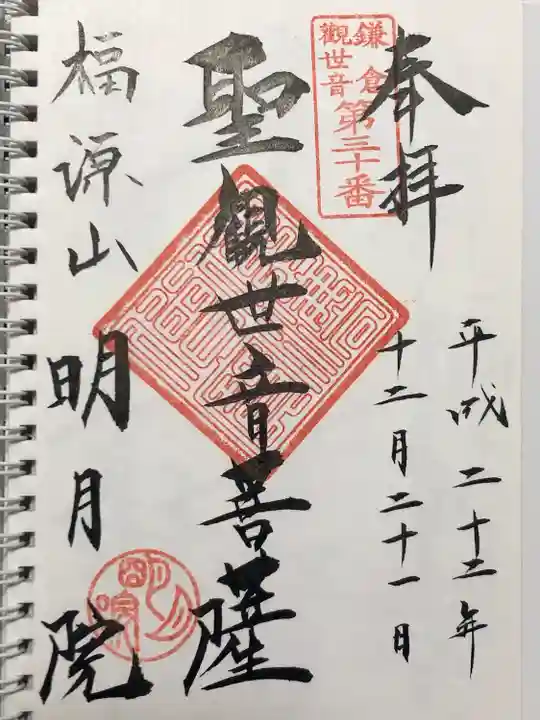 奉拝
鎌倉
觀世音
第三十番
平成二十二年
十二月二十一日
聖觀世音菩薩
福源山
明月院